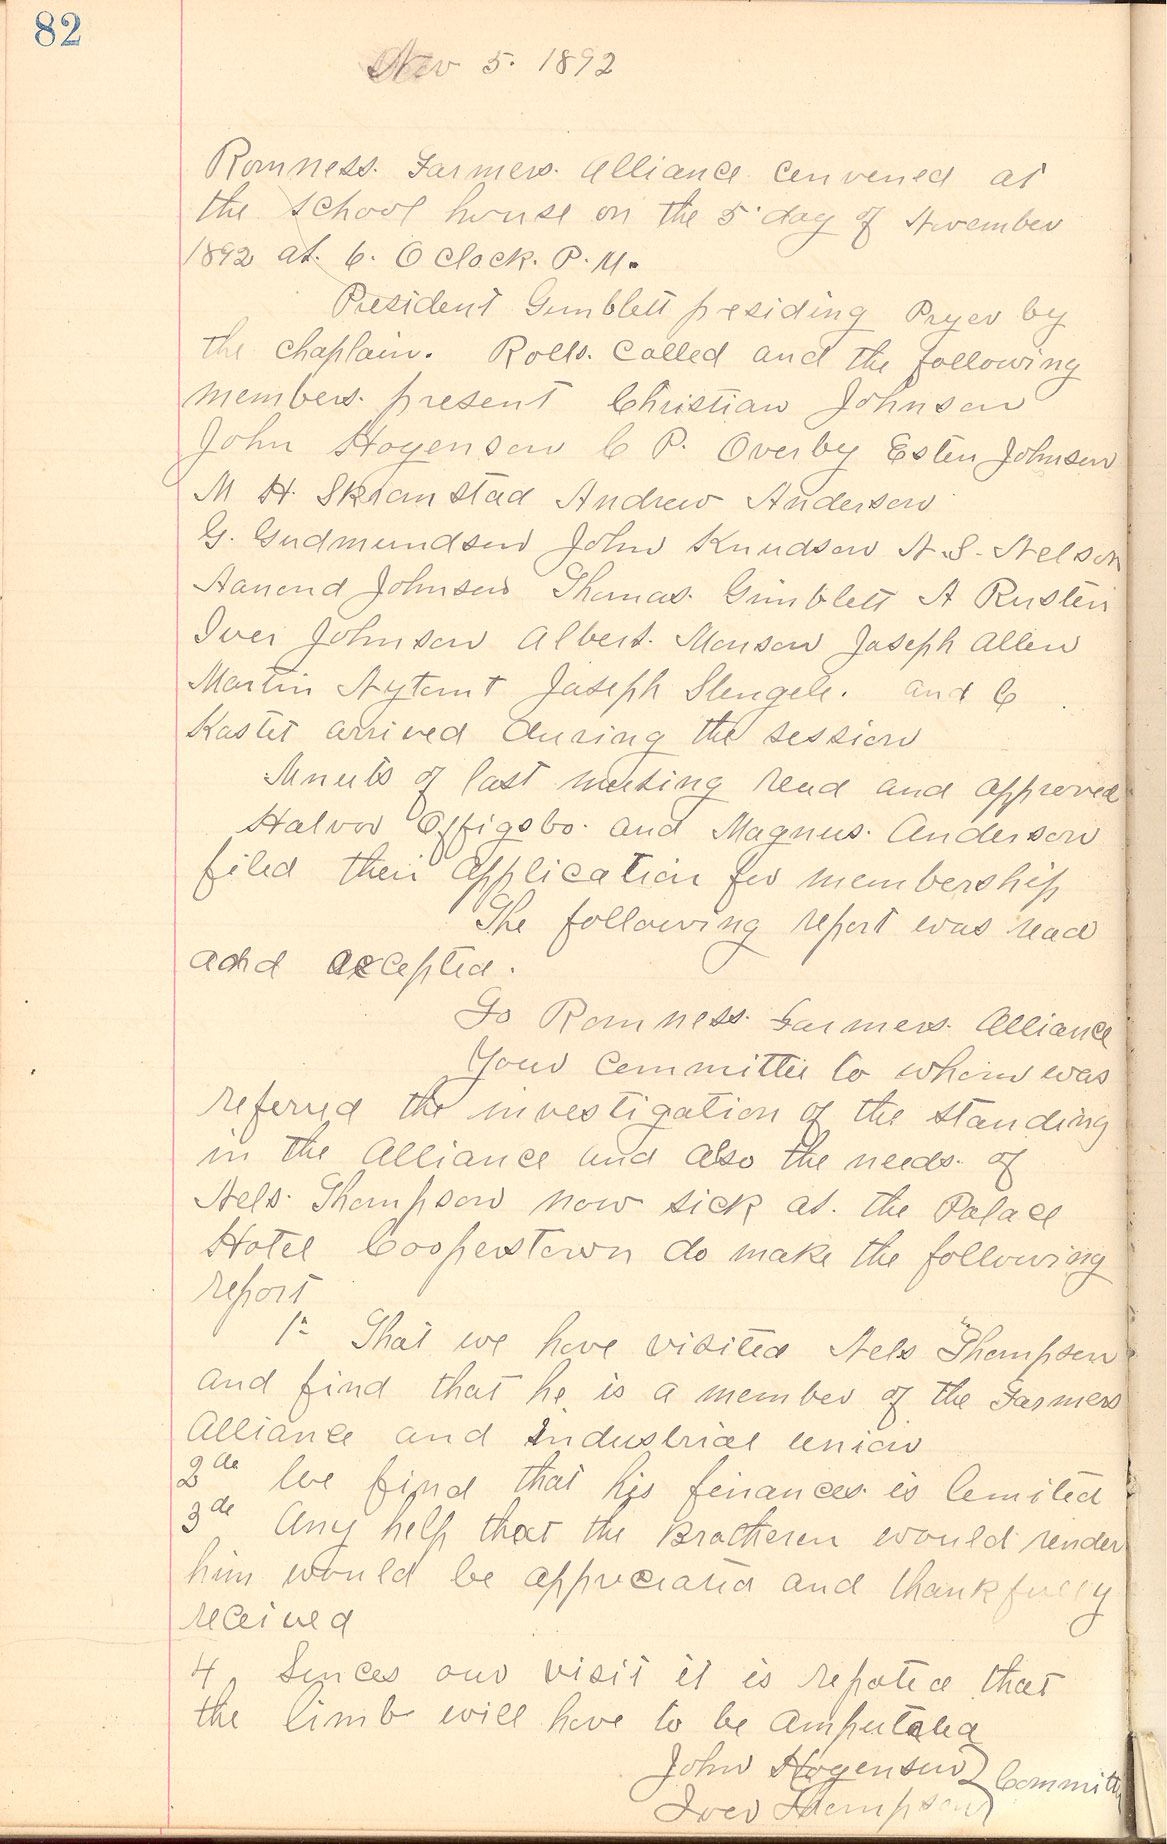 82
Nov 5. 1892
Romness. Farmers. Alliance convened at
the school house on the 5 day of November
1892 at. 6. O Clock. P. M.
President Gimblett presiding Pryer by
the chaplain. Rolls. Called and the following
members. present Christian Johnson
John Hogenson C P. Overby Esten Johnson
M H. Skramstad Andrew Anderson
G. Gudmundson John Knudson N. S. Nelson
Aanond Johnson Thomas. Gimblett A Rusten
Iver Johnson Albert. Monson Joseph Allen
Martin Joseph and C
Kastet arrived during the session
Mnuts of last meeting read and approved
Halvor and Magnus. Anderson
filed their application for membership
The following report was read
and accepted.
To Romness. Farmers. Alliance
Your committee to whom was
referred the investigation of the standing
in the Alliance and also the needs. of
Nels. Thompson now sick at. the Palace
Hotel Cooperstown do make the following
report
1st That we have visited Nels Thompson
and find that he is a member of the Farmers
Alliance and industrial union
2de We find that his finances. is limited
3de Any help that the Bratheren would render
him would be appreciated and thankfully
received
4. Sinces our visit it is repoted that
the limb will have to be amputated
John Hogenson
Iver Thompson } Committy